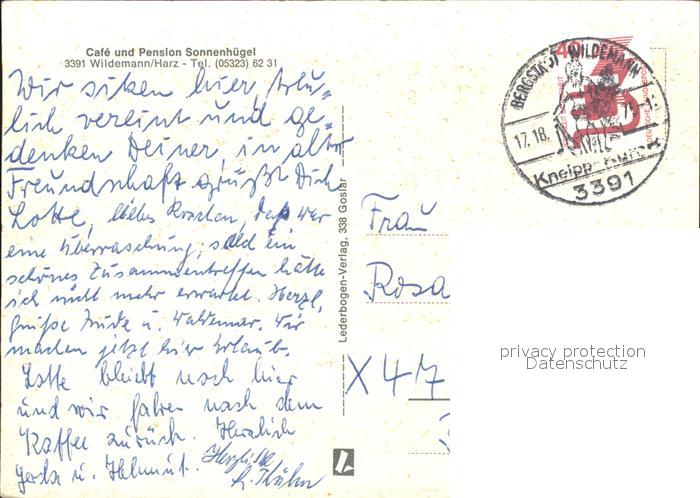 Café und Pension Sonnenhügel
3391 Wildemann/Harz - Tel. (05323) 62 31
Wir sitzen hier, fröh-
lich vereint und ge-
denken Deiner, in alter
Freundschaft grüßt Dich
Lotte, liebes Röschen, das war
eine Überraschung, solch ein
schönes Zusammentreffen hätte
ich nicht mehr erwartet. Herzl.
Grüße u. Waldemar. Wir
machen jetzt hier Urlaub.
Lotte bleibt noch hier
und wir fahren nach dem
Kaffee zurück. Herzlich
Gerda u. Helmut. Herzlichst
Lederbogen-Verlag, 338 Goslar
BERGSTADT WILDEMANN
17.18.
Kneipp-Kurort
3391
40
Frau
Rosa
X 47
privacy protection
Datenschutz